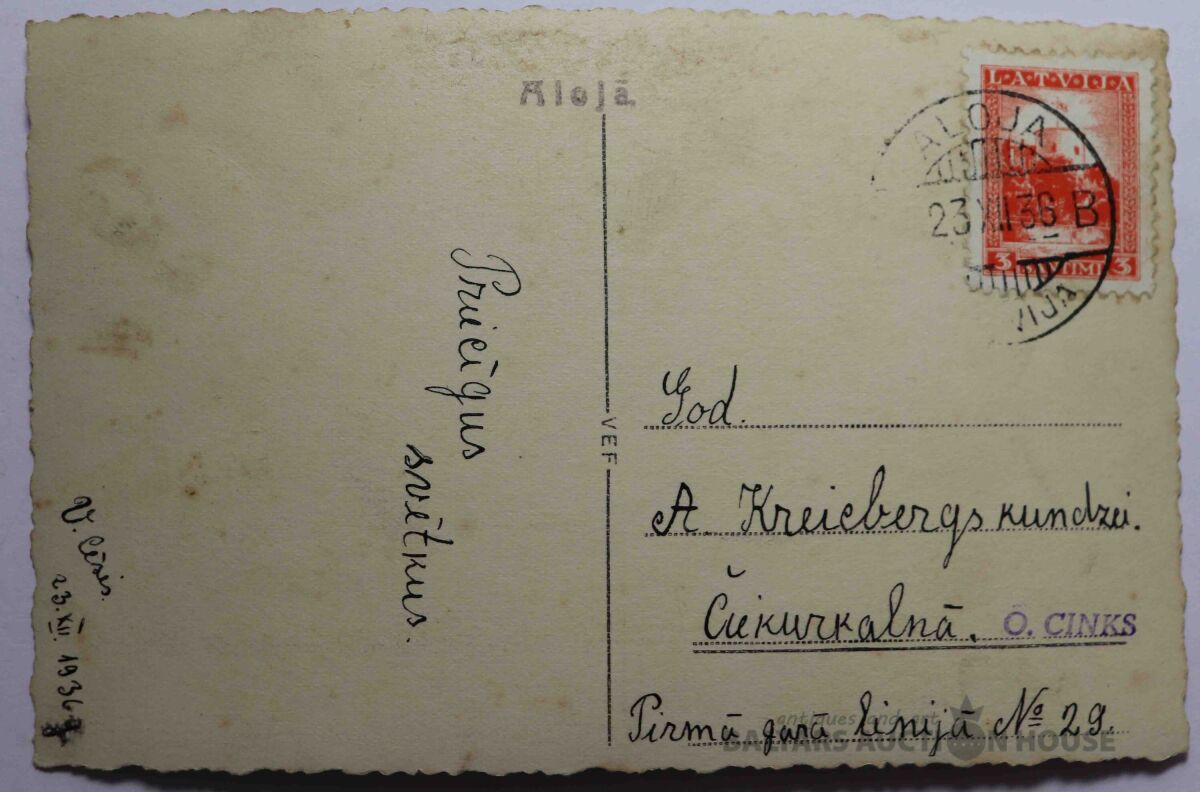 Alojā
LATVIJA
ALOJA
23 XII 36 B
3 3
VEF
Priecīgus
svētkus.
V. Cēsis.
23. XII. 1936
God.
A. Kreicbergs kundzei.
Čiekurkalnā.
O. CINKS
Pirmā garā linijā № 29.
antiques and art
BALTARS AUCTION HOUSE